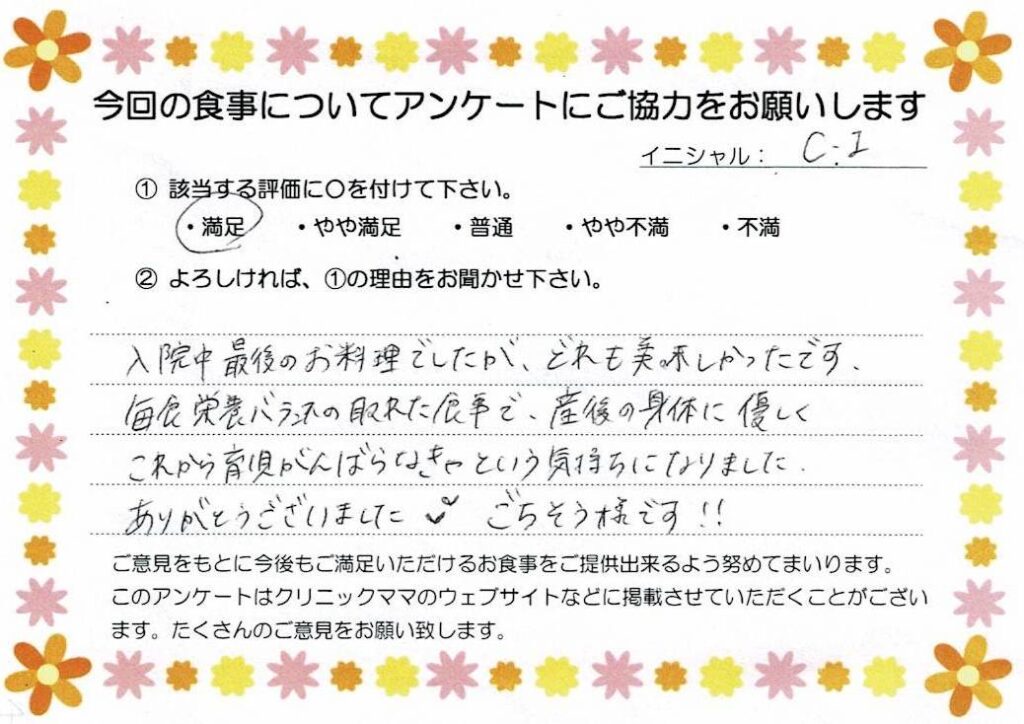 今回の食事についてアンケートにご協力をお願いします
イニシャル： C.I
① 該当する評価に〇を付けて下さい。
・満足 ・やや満足 ・普通 ・やや不満 ・不満
② よろしければ、①の理由をお聞かせ下さい。
入院中最後のお料理でしたが、どれも美味しかったです、
毎食栄養バランスの取れた食事で、産後の身体に優しく
これから育児がんばらなきゃという気持ちになりました.
ありがとうございました♡ ごちそう様です!!
ご意見をもとに今後もご満足いただけるお食事をご提供出来るよう努めてまいります。
このアンケートはクリニックママのウェブサイトなどに掲載させていただくことがござい
ます。たくさんのご意見をお願い致します。